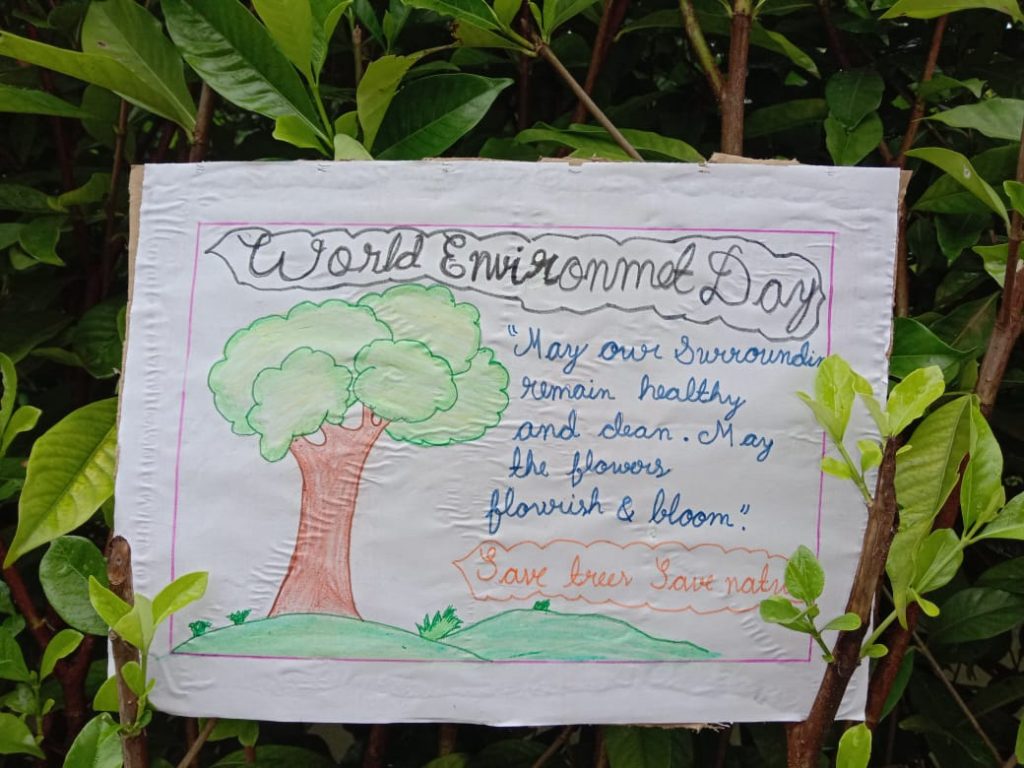 World Environmet Day
"May our Surroundin
remain healthy
and clean. May
the flowers
flourish & bloom".
Save trees Save natu